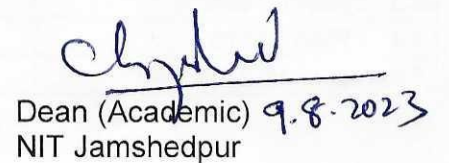 Dean (Academic) 9.8.2023
NIT Jamshedpur